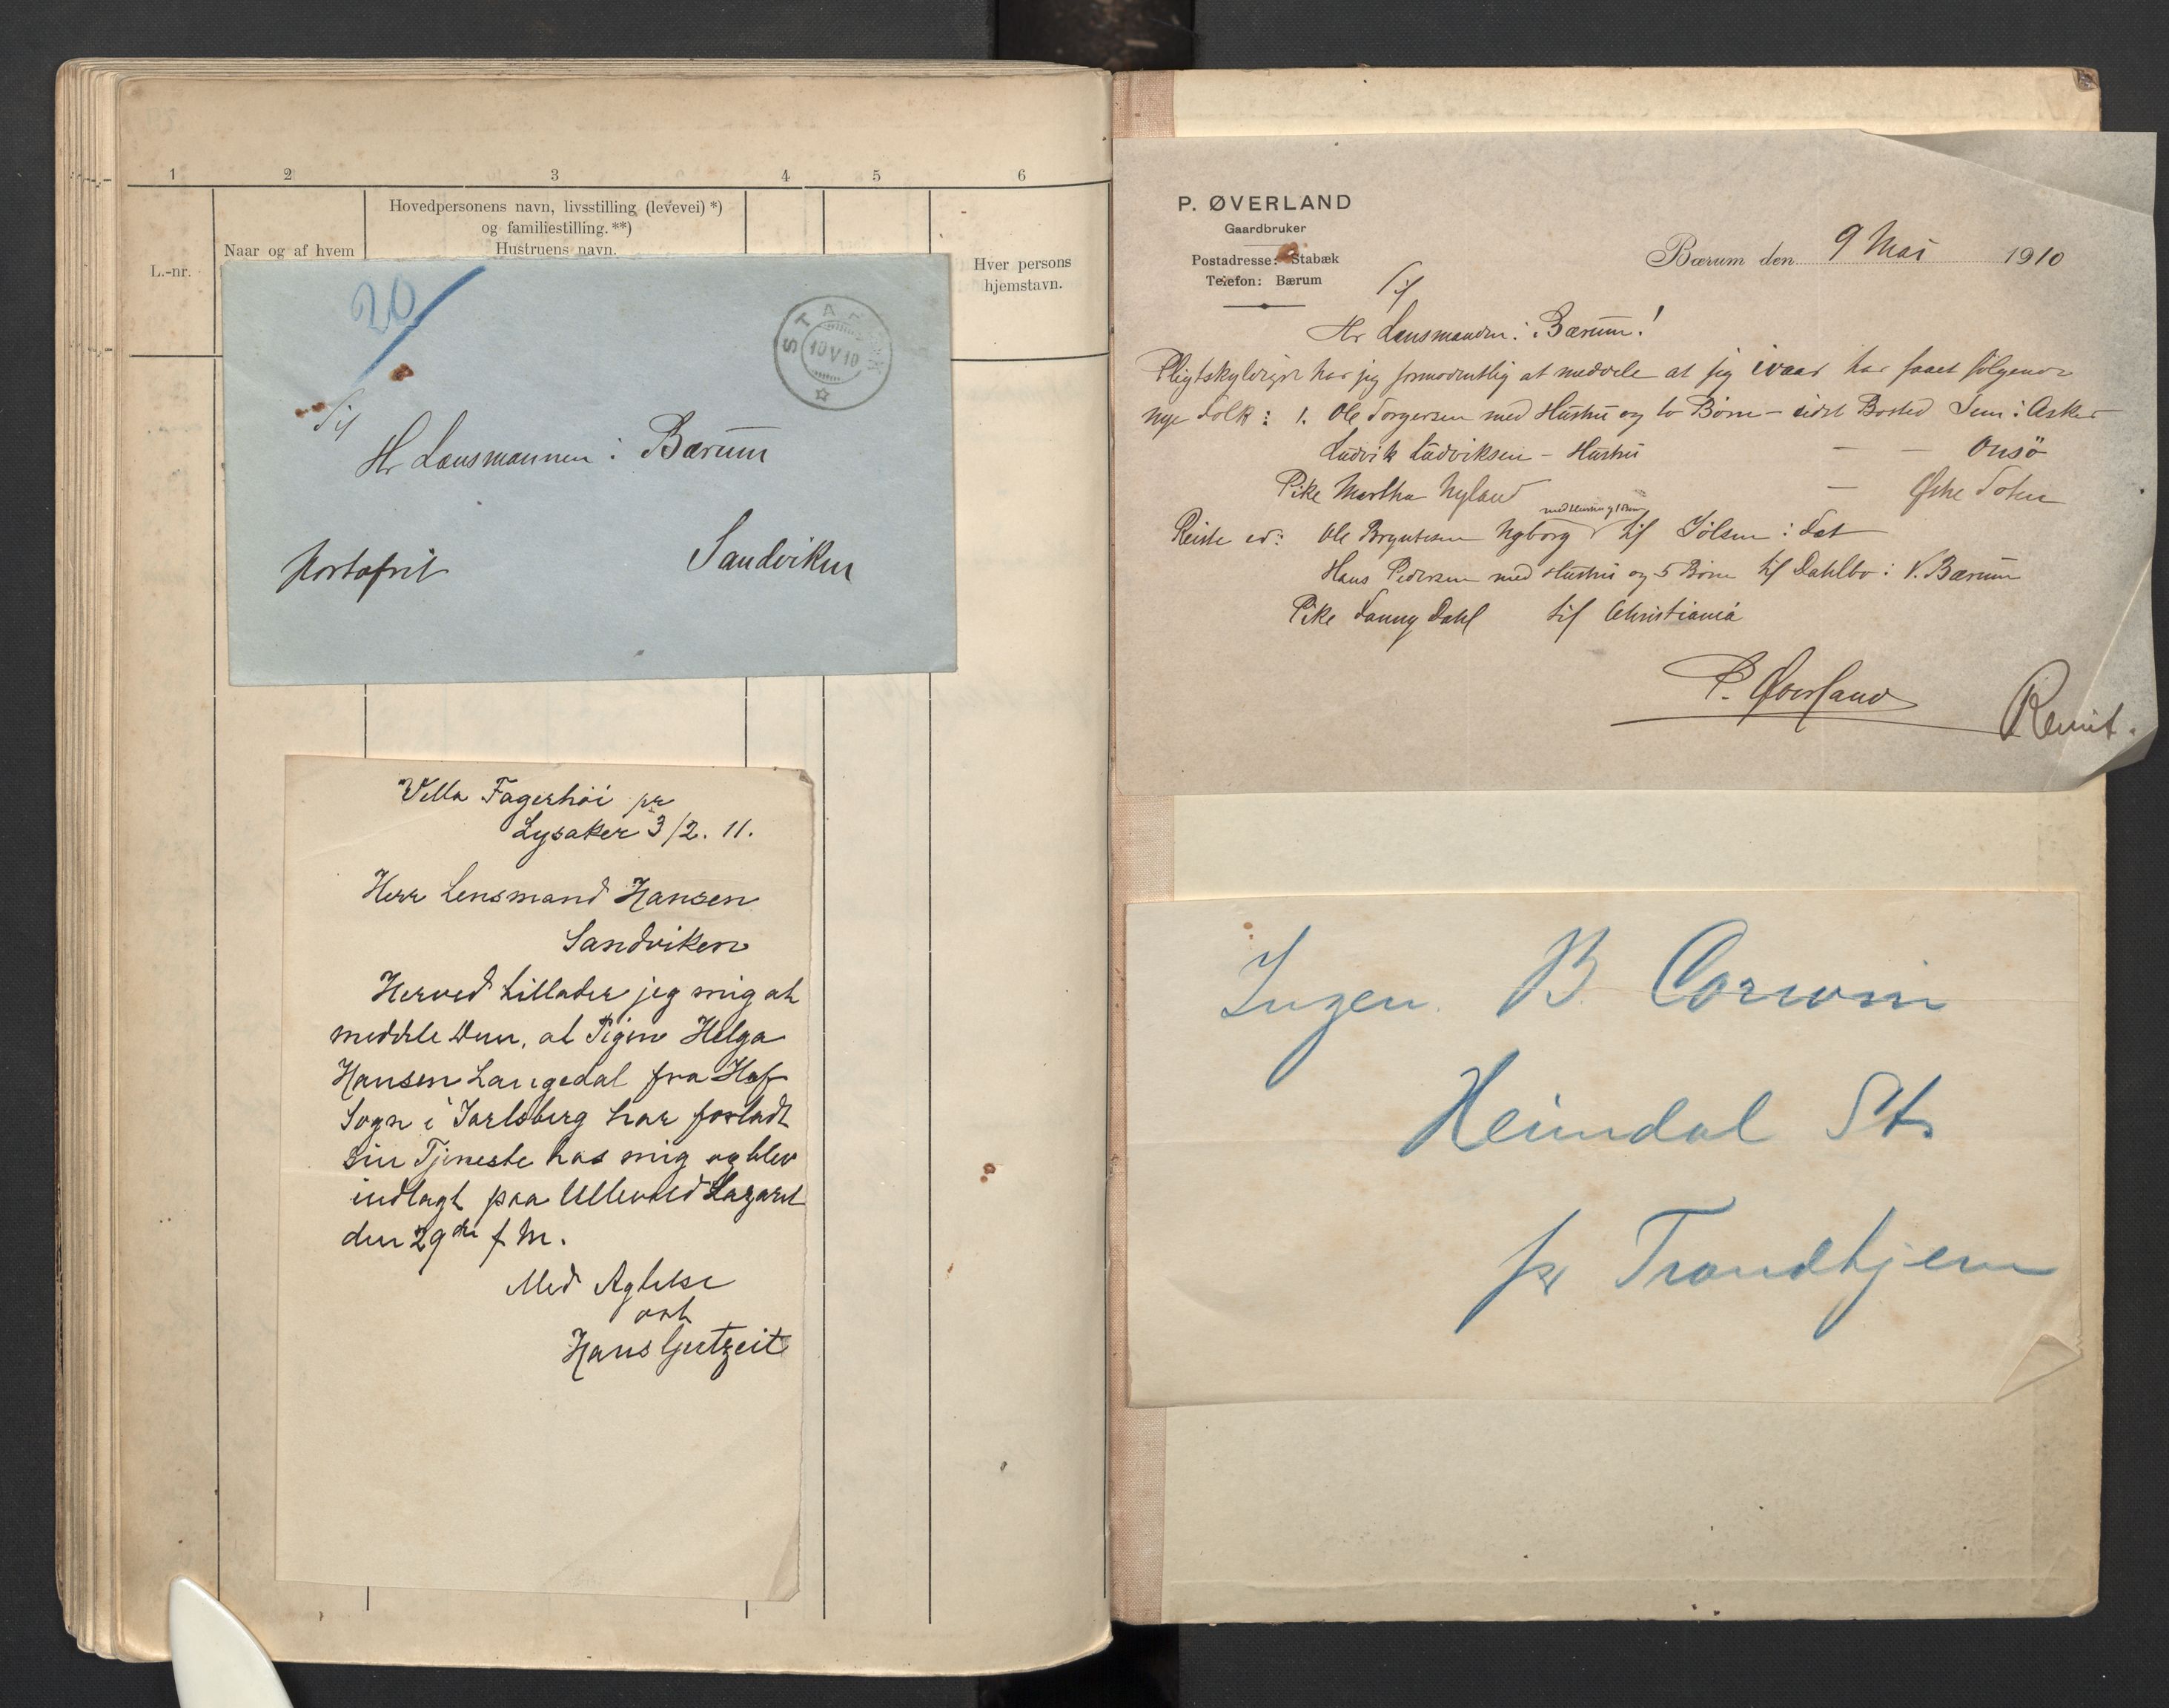 1 2 3 4 5 6
L.-nr.
Naar og af hvem
Hovedpersonens navn, livsstilling (levevei) *)
og familiestilling. **)
Hustruens navn.
Hver persons
hjemstavn.
20
STABÆK
10 V 10
Til
Hr Lensmannen i Bærum
Portofrit
Sandviken
Villa Fagerhöi pr
Lysaker 3/2. 11.
Herr Lensmand Hansen
Sandviken
Herved tillader jeg mig at
meddele Dem, at Pigen Helga
Hansen Langedal fra Hof
Sogn i Jarlsberg har forladt
sin Tjeneste hos mig og blev
indlagt paa Ullevold Lazaret
den 29de f. M.
Med Agtelse
Hans Gutzeit
P. ØVERLAND
Gaardbruker
Postadresse: Stabæk
Telefon: Bærum
Bærum den 9 Mai 1910
Til
Hr Lensmanden i Bærum!
Pligtskyldigst har jeg at meddele at jeg ivaar har faaet følgende
nye Folk: 1. Ole Torgersen med Hustru og to Børn – sidst Bosted Sem i Asker
Ludvik Ludviksen – Hustru — — Onsö
Pike Martha Nyland — Østre Toten
med Hustru og 1 Barn
Reiste er: Ole Bryntesen Nyborg til Jølsen i Fet
Hans Pedersen med Hustru og 5 Børn til Dahlbo i V. Bærum
Pike Fanny Dahl til Christiania
P. Øverland
Remit.
Ingen. B. Corwin
Heimdal St.
pr Trondhjem